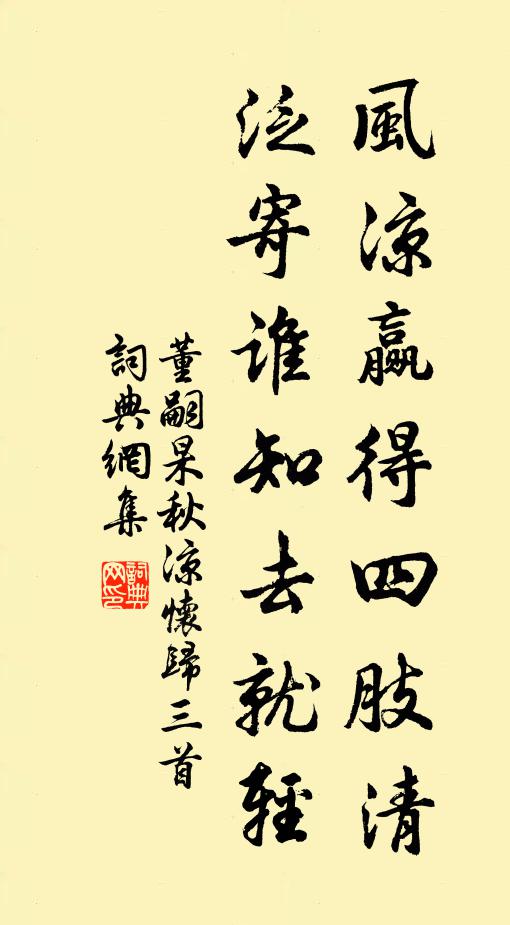 風涼贏得四肢清
泛寄誰知去就輕
董嗣杲秋涼懷歸三首
詞典網集
詞典
网印